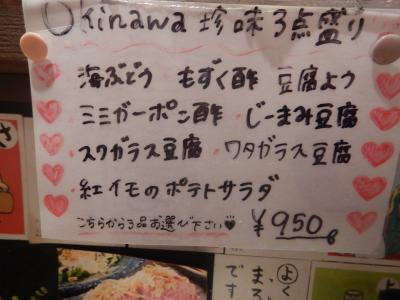 Okinawa 珍味3点盛り
海ぶどう もずく酢 豆腐よう
ミミガーポン酢 ・じーまみ豆腐
・スクガラス豆腐 ・ワタガラス豆腐
・紅イモのポテトサラダ
こちらから3品お選び下さい♥ ¥950
さ
よく
まろ
です